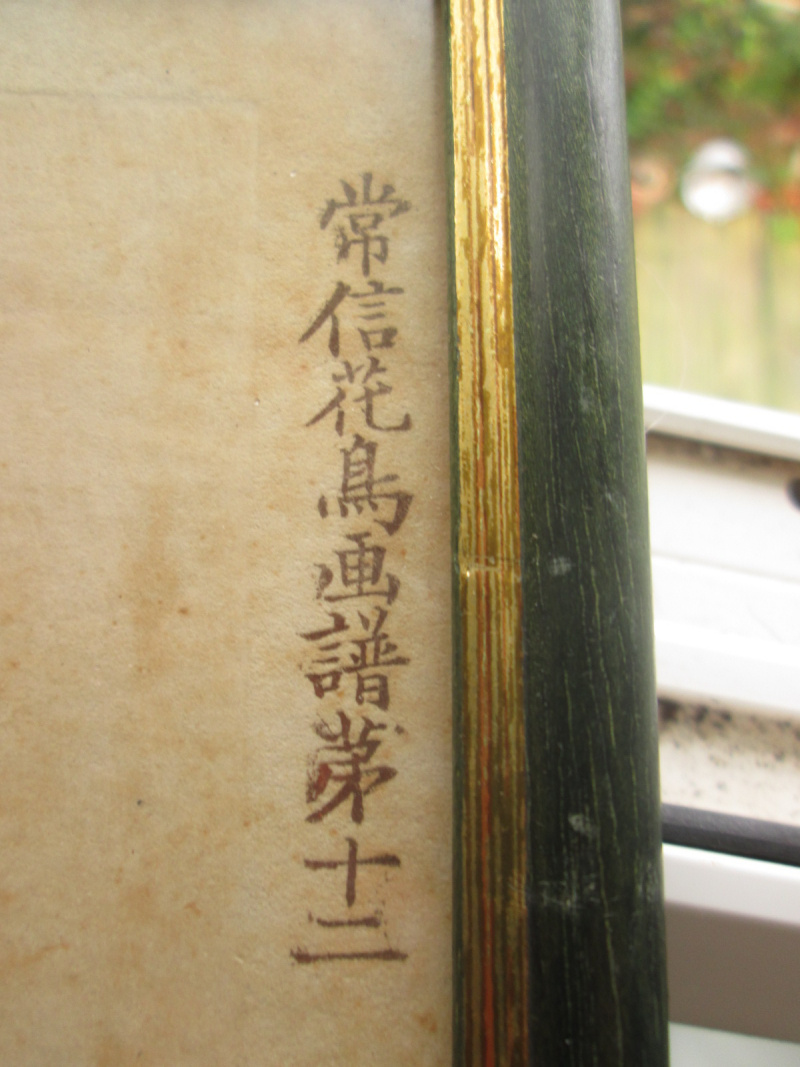 常信花鳥画譜第十二